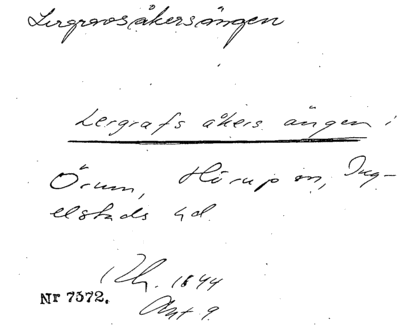 Lergravsåkersängen
Lergrafs åkers ängen i
Örum, Hörup sn, Ing-
elstads hd
Rh. 1844
Akt 9.
Nr 7572.